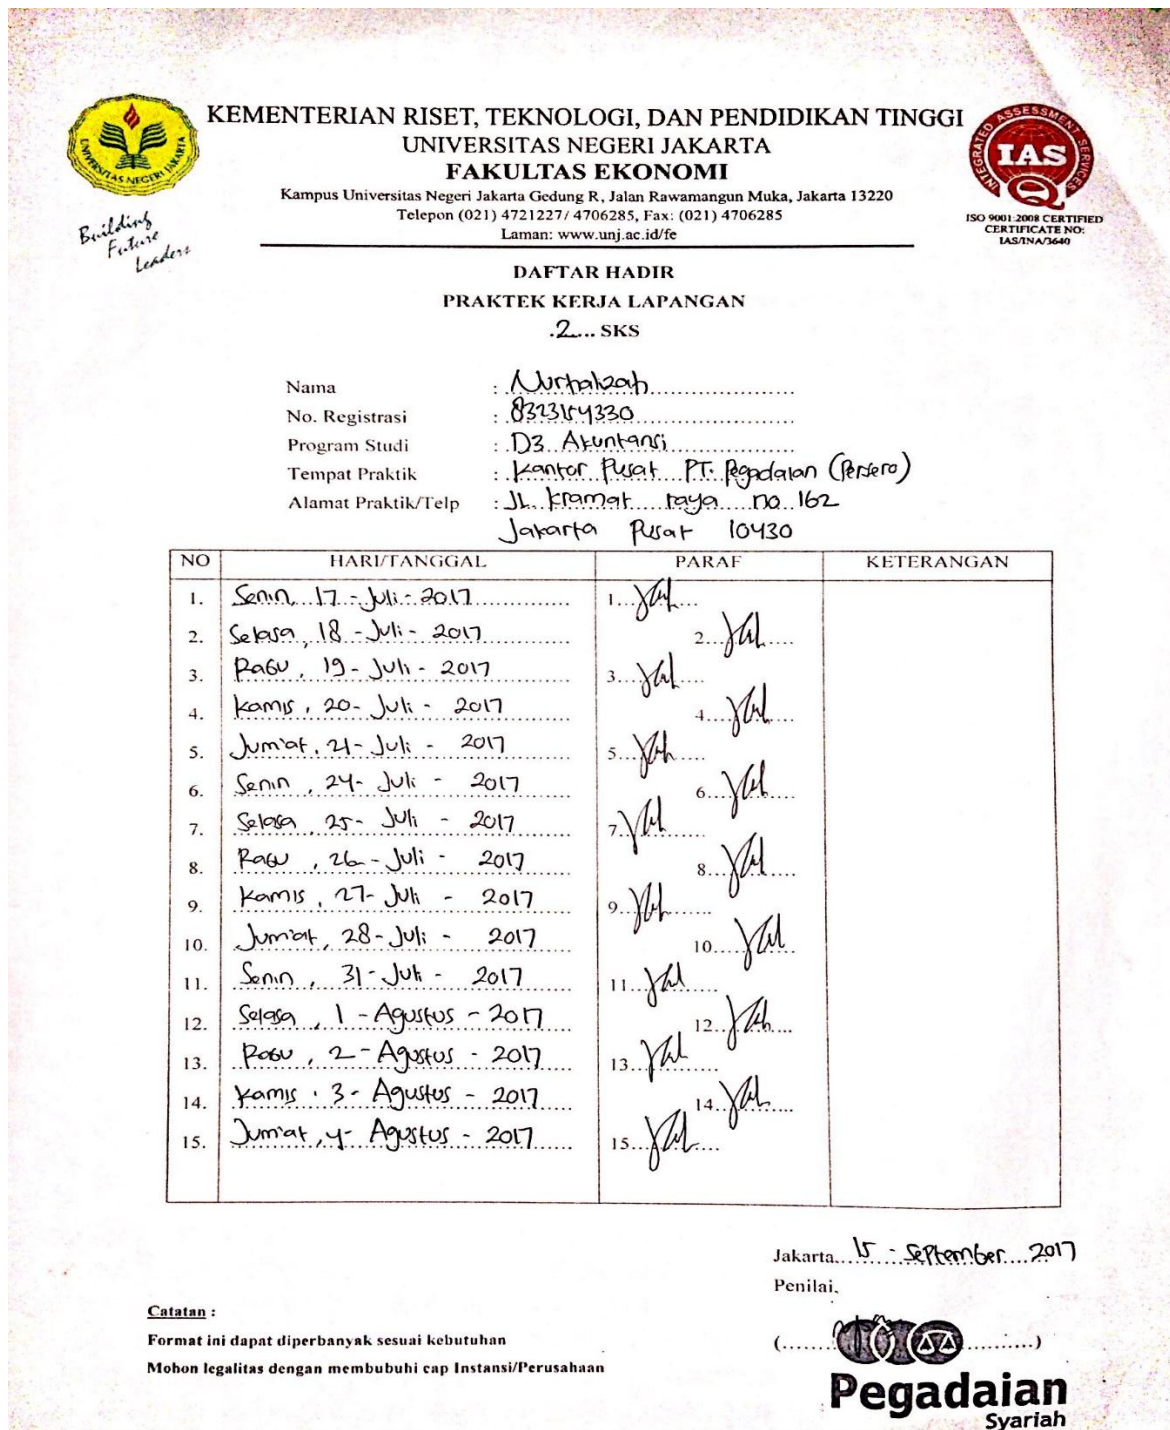 KEMENTERIAN RISET, TEKNOLOGI, DAN PENDIDIKAN TINGGI
UNIVERSITAS NEGERI JAKARTA
FAKULTAS EKONOMI
Kampus Universitas Negeri Jakarta Gedung R, Jalan Rawamangun Muka, Jakarta 13220
Telepon (021) 4721227/ 4706285, Fax: (021) 4706285
Laman: www.unj.ac.id/fe
UNIVERSITAS NEGERI JAKARTA
Building
Future
Leaders
INTEGRATED ASSESSMENT SERVICES
IAS
ISO 9001:2008 CERTIFIED
CERTIFICATE NO:
IAS/INA/3640
DAFTAR HADIR
PRAKTEK KERJA LAPANGAN
.2... SKS
Nama : Nurhalizah
No. Registrasi : 8323154330
Program Studi : D3 Akuntansi
Tempat Praktik : Kantor Pusat PT. Pegadaian (Persero)
Alamat Praktik/Telp : JL. kramat raya no 162
Jakarta Pusat 10430
NO HARI/TANGGAL PARAF KETERANGAN
1. Senin, 17 - Juli - 2017 1.
2. Selasa, 18 - Juli - 2017 2.
3. Rabu, 19 - Juli - 2017 3.
4. Kamis, 20 - Juli - 2017 4.
5. Jum'at, 21 - Juli - 2017 5.
6. Senin, 24 - Juli - 2017 6.
7. Selasa 25 - Juli - 2017 7.
8. Rabu, 26 - Juli - 2017 8.
9. Kamis, 27 - Juli - 2017 9.
10. Jum'at, 28 - Juli - 2017 10.
11. Senin, 31 - Juli - 2017 11.
12. Selasa, 1 - Agustus - 2017 12.
13. Rabu, 2 - Agustus - 2017 13.
14. Kamis, 3 - Agustus - 2017 14.
15. Jum'at, 4 - Agustus - 2017 15.
Jakarta 15 - September 2017
Penilai,
Catatan :
Format ini dapat diperbanyak sesuai kebutuhan
Mohon legalitas dengan membubuhi cap Instansi/Perusahaan
(.................)
Pegadaian
Syariah